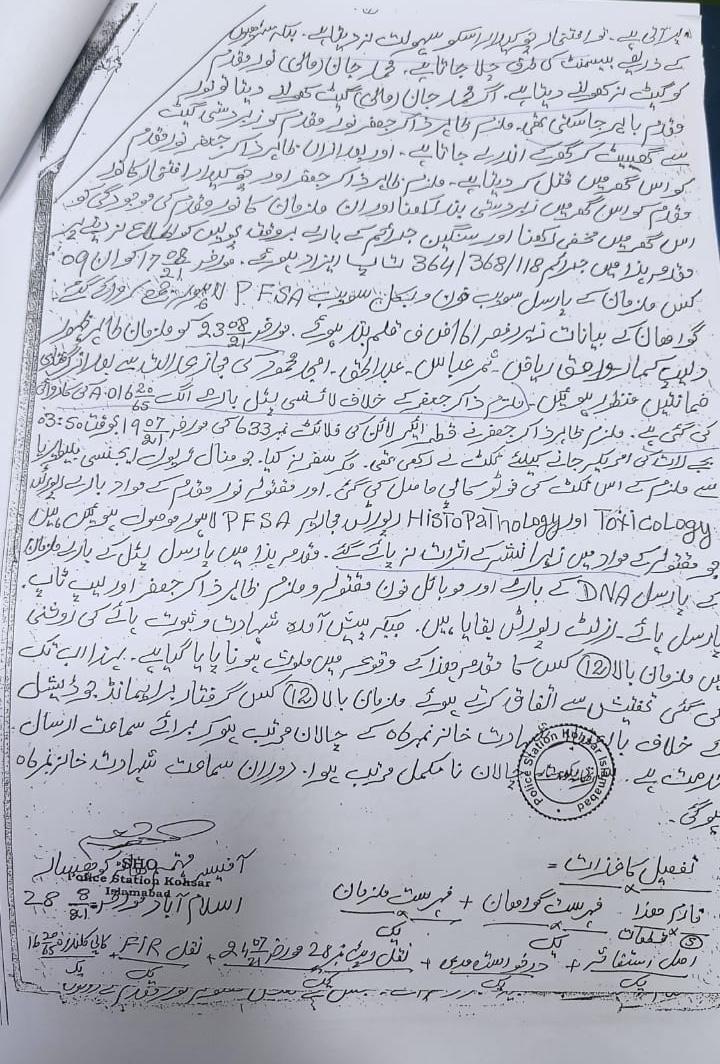 پر آتی ہے۔ تو افتخار چوکیدار اسکو سہولت نہ دیتا ہے۔ بلکہ سیڑھیوں
کے ذریعے بیسمنٹ کی طرف چلا جاتا ہے۔ محمد جان (مالی) نور مقدم
کو گیٹ نہ کھولنے دیتا ہے۔ اگر محمد جان (مالی) گیٹ کھولنے دیتا تو نور
مقدم باہر جا سکتی تھی۔ ملزم ظاہر ذاکر جعفر نور مقدم کو زبردستی گیٹ
سے گھسیٹ کر گھر کے اندر لے جاتا ہے۔ اور بعد ازاں ظاہر ذاکر جعفر نور مقدم
کو اس گھر میں قتل کر دیتا ہے۔ ملزم ظاہر ذاکر جعفر اور چوکیدار افتخار کا نور
مقدم کو اس گھر میں زبردستی بند رکھنا اور ان ملزمان کا نور مقدم کی موجودگی کو
اس گھر میں مخفی رکھنا اور سنگین جرائم کے بارے بروقت پولیس کو اطلاع نہ دینے پر
مقدمہ ہذا میں جرائم 364/368/118 ت پ ایزاد ہوئے۔ مورخہ 17 08/21 کو ان 09
کس ملزمان کے پارسل سویب خون و بکل سویب PFSA لاہور
گواہان کے بیانات زیر دفعہ 161 ض ف قلمبند ہوئے۔ مورخہ 23 08/21 کو ملزمان طاہر ظہور
دلیپ کمار وامق ریاض۔ ثمر عباس۔ عبدالحق۔ امجد محمود کی مجاز عدالت سے بعد از گرفتاری
ضمانتیں منظور ہوئیں۔ ملزم ذاکر جعفر کے خلاف لائسنسی پسٹل بارے الگ A.O 16 20/65 کی کاروائی
کی گئی ہے۔ ملزم ظاہر ذاکر جعفر نے قطر ائیر لائن کی فلائٹ نمبر 633 کی مورخہ 19 07/21 بوقت 03:50
بجے الات کی امریکہ جانے کیلئے ٹکٹ لے رکھی تھی۔ مگر سفر نہ کیا۔ جو منال ٹریول ایجنسی بلیو ایریا
سے ملزم کے اس ٹکٹ کی فوٹو کاپی حاصل کی گئی۔ اور مقتولہ نور مقدم کے مواد بارے رپورٹس
Toxicology اور HisToPaThology رپورٹس مجاریہ PFSA لاہور موصول ہوئیں ہیں
جو مقتولہ کے مواد میں زہر / نشہ کے اثرات نہ پائے گئے۔ مقدمہ ہذا میں پارسل پسٹل کے بارے ملزمان
کے پارسل DNA کے بارے اور موبائل فون مقتولہ و ملزم ظاہر ذاکر جعفر اور لیپ ٹاپ
پارسل ہائے۔ رزلٹ رپورٹس بقایا ہیں۔ جبکہ پیش آمدہ شہادت و ثبوت ہائے کی روشنی
میں ملزمان بالا (12) کس کا مقدمہ ہذا کے وقوعہ میں ملوث ہونا پایا گیا ہے۔ لہذا اب تک
کی گئی تفتیش سے اتفاق کرتے ہوئے ملزمان بالا (12) کس گرفتار بر ریمانڈ جوڈیشل
کے خلاف شہادت خانہ نمبر 6 کے چالان مرتب ہو کر برائے سماعت ارسال
خدمت ہے۔ چالان نامکمل مرتب ہوا۔ دوران سماعت شہادت خانہ نمبر 6
ہو گی۔
Police Station Kohsar Islamabad
SHO
Police Station Kohsar
Islamabad
اسلام آباد مورخہ 28 8/21
تفصیل کاغذات =
فارم ھذا فہرست گواھان + فہرست ملزمان
⑤ قطعات یک یک
اصل استغاثہ + درخواست مدعی + نقل رپٹ نمبر 28 مورخہ 24 07/21 + نقل FIR + 16 20/65
یک یک یک یک یک